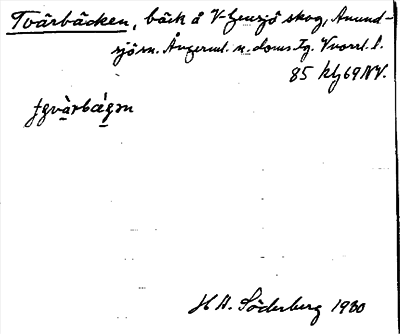 Tvärbäcken, bäck å V-Gensjö skog, Anund-
sjö sn. Ångerml. n. doms. Tg. Vvarl. l.
85 kbl 69 NV.
H A. Söderberg 1930